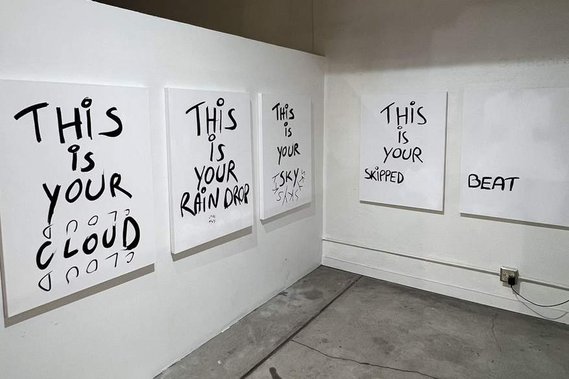 THiS
iS
YOUR
CLOUD
CLOUD
CLOUD
THiS
iS
YOUR
RAiN DROP
THiS
iS
YOUR
SKY
SKY
THiS
iS
YOUR
SKiPPED
BEAT